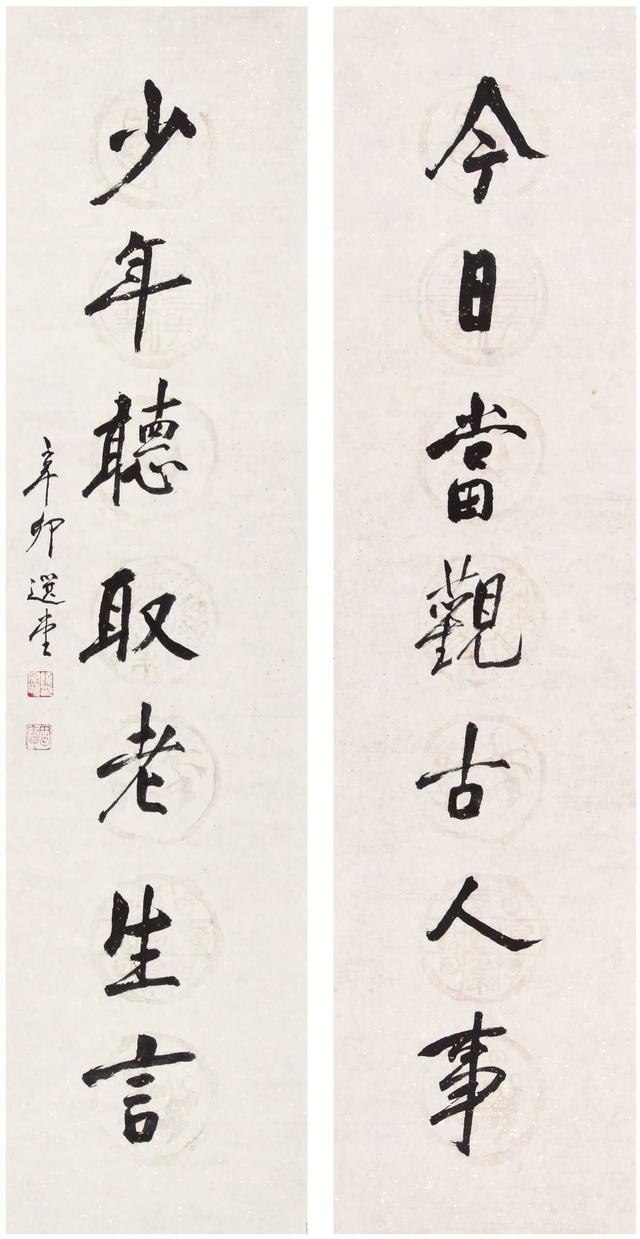 今日當觀古人事
少年聽取老生言
辛卯選堂